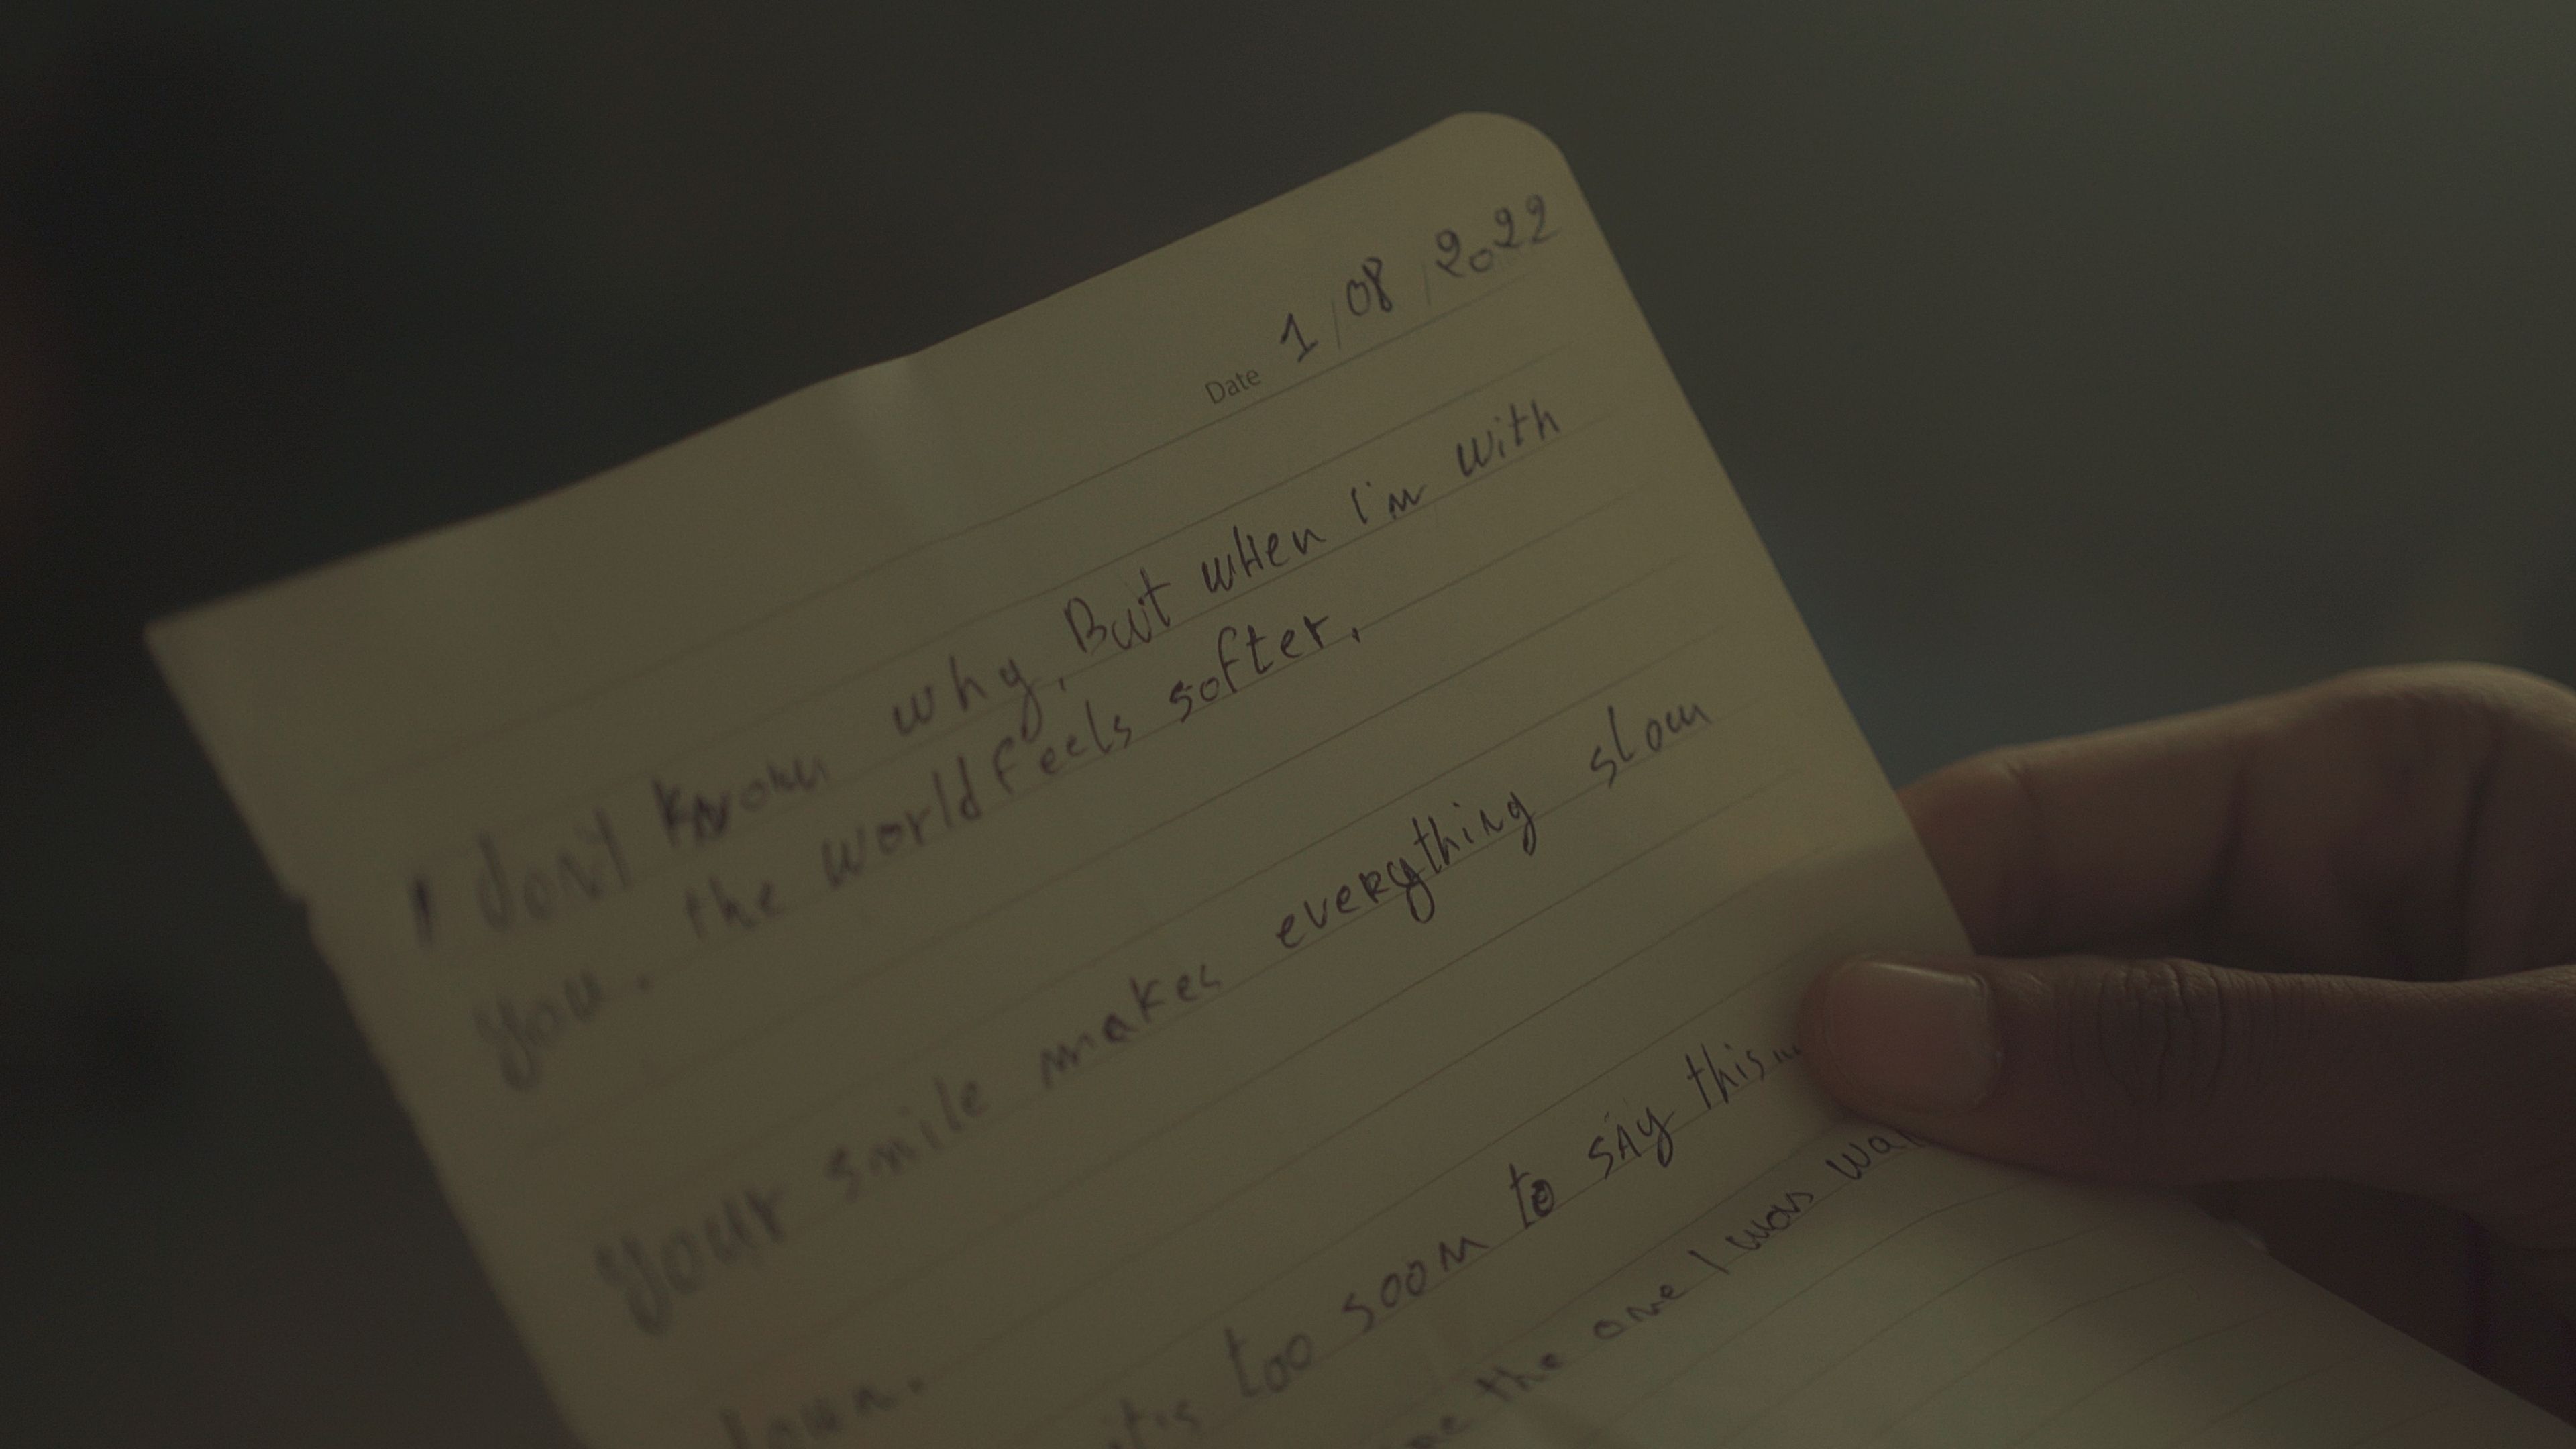 Date 1/08/2022
I don't know why. But when I'm with
you. the world feels softer.
Your smile makes everything slow
down.
it's too soon to say this...
the one I was